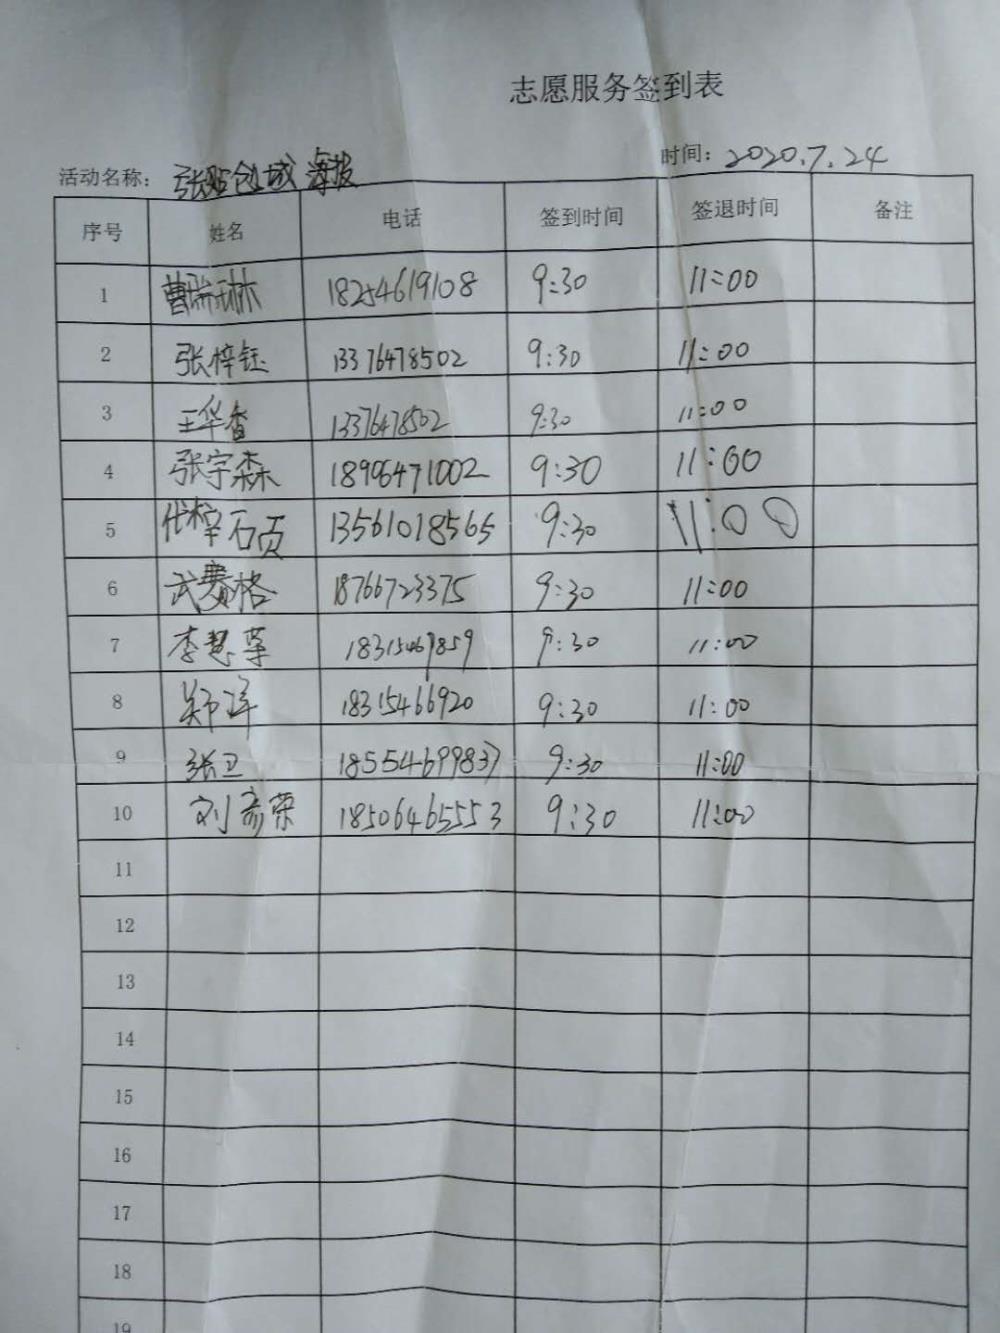 志愿服务签到表
活动名称: 张贴创城海报 时间: 2020.7.24
序号 姓名 电话 签到时间 签退时间 备注
1 曹瑞琳 18254619108 9:30 11:00
2 张梓钰 13376478502 9:30 11:00
3 王华香 13376478502 9:30 11:00
4 张宇森 18906471002 9:30 11:00
5 代梓硕 13561018565 9:30 11:00
6 武赛格 18766723375 9:30 11:00
7 李慧 9:30 11:00
8 郑洋 18315466920 9:30 11:00
9 张卫 18554699837 9:30 11:00
10 刘荣 18506465553 9:30 11:00
11
12
13
14
15
16
17
18
19